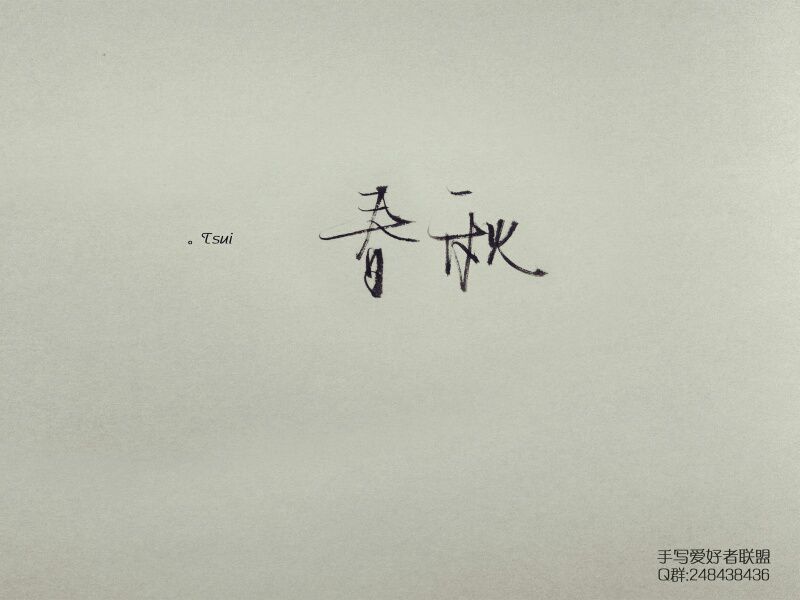 春秋
。Tsui
手写爱好者联盟
Q群:248438436